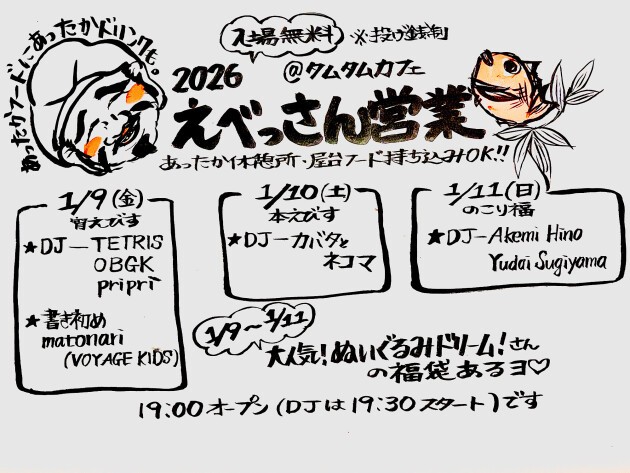 あったかフードにあったかドリンクも。
入場無料 ※投げ銭制
@タムタムカフェ
2026
えべっさん営業
あったか休憩所・屋台フード持ち込みOK!!
1/9(金)
宵えびす
★DJ―TETRIS
OBGK
pripri
★書き初め
matonari
(VOYAGE KIDS)
1/10(土)
本えびす
★DJ―カバタと
ネコマ
1/11(日)
のこり福
★DJ―Akemi Hino
Yudai Sugiyama
1/9〜1/11
大人気!ぬいぐるみドリーム!さん
の福袋あるヨ♡
19:00オープン(DJは19:30スタート)です